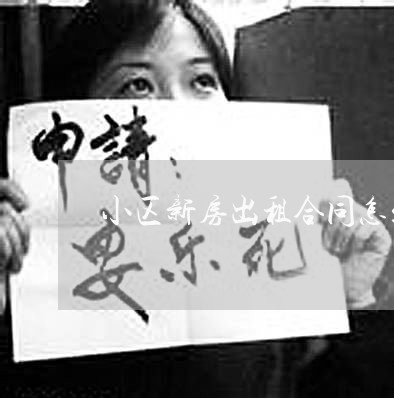 申請：
小区新房出租合同怎
安乐死